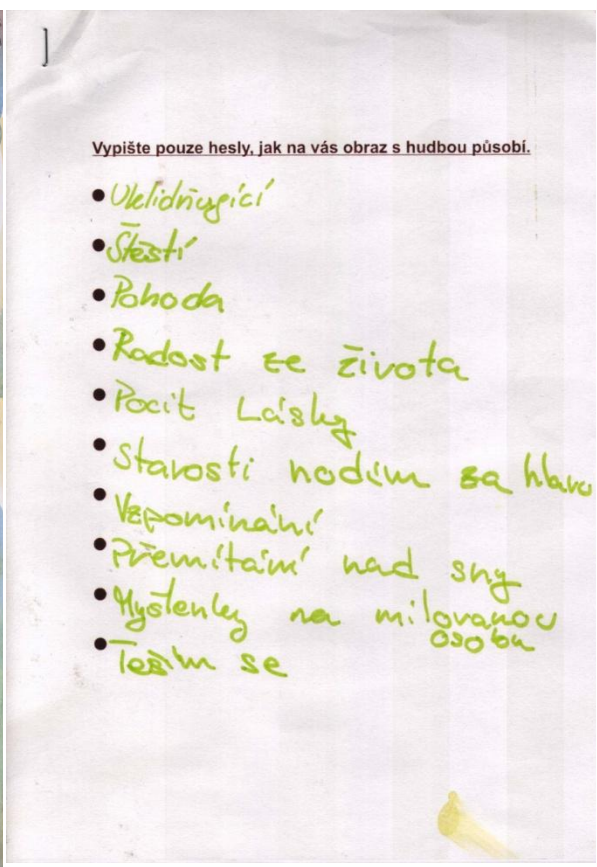 Vypište pouze hesly, jak na vás obraz s hudbou působí.
• Uklidňující
• Štěstí
• Pohoda
• Radost ze života
• Pocit Lásky
• Starosti hodím za hlavu
• Vzpomínání
• Přemítání nad sny
• Myšlenky na milovanou
osobu
• Těším se